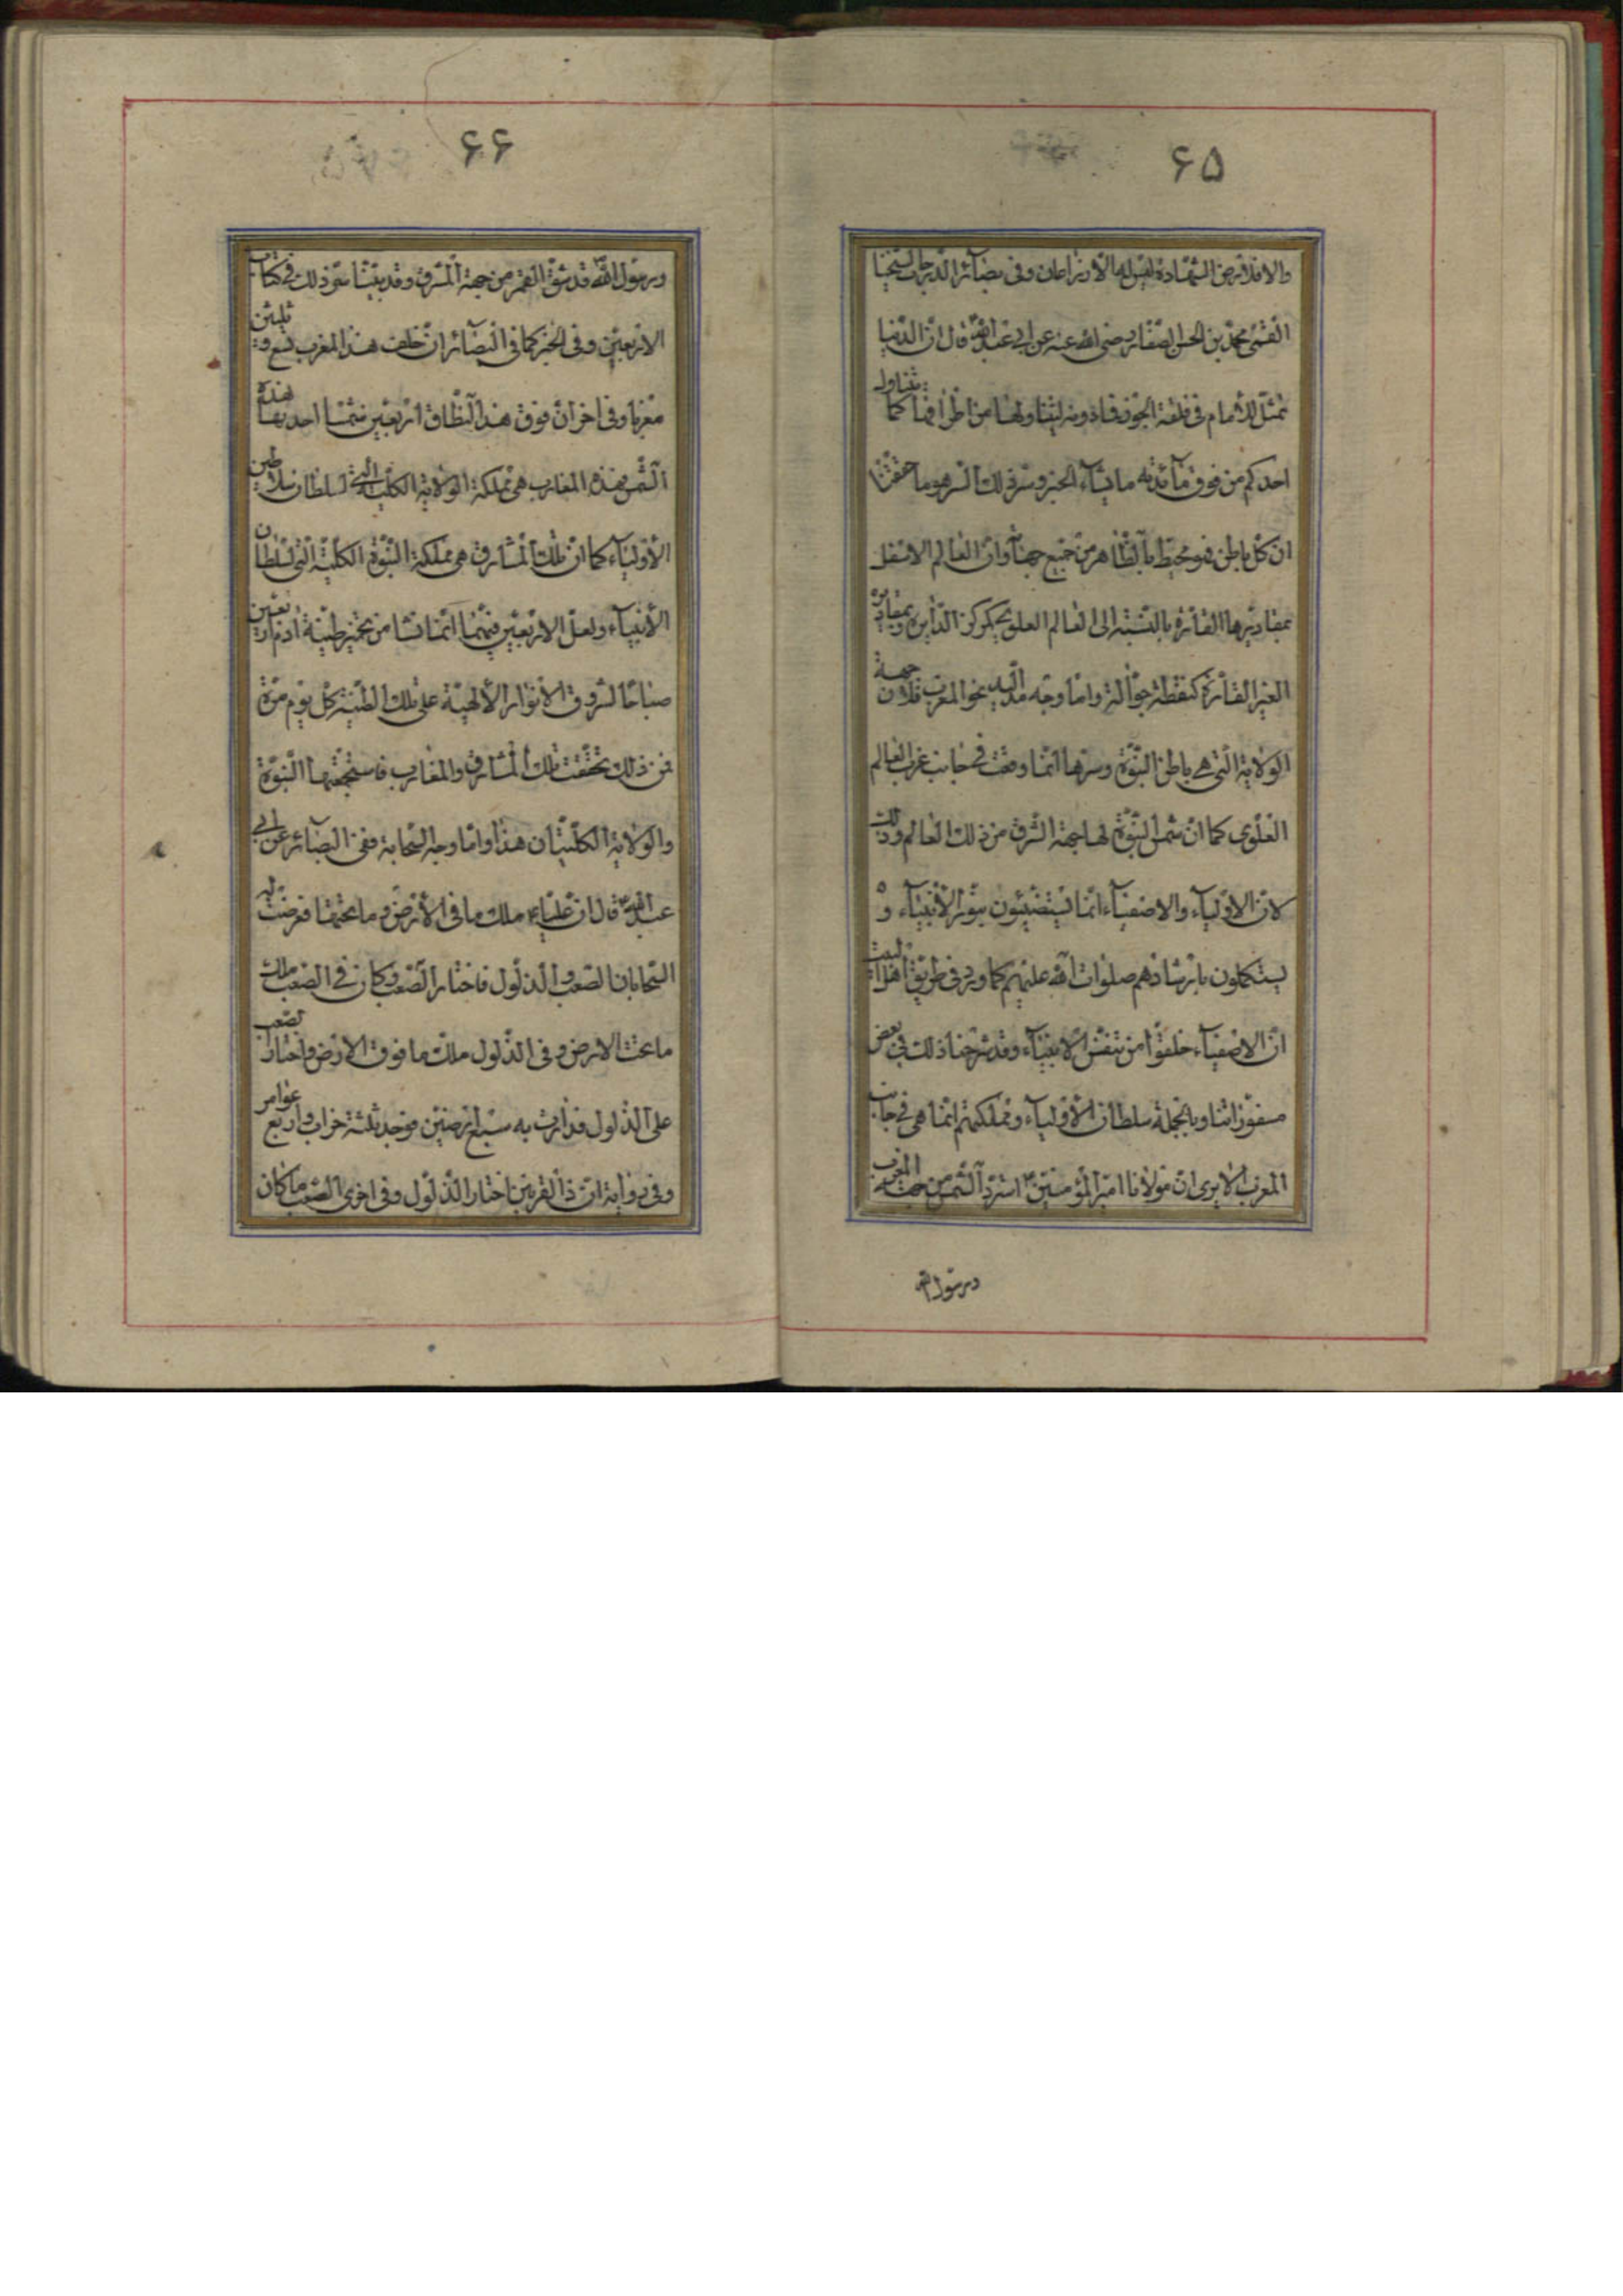 ۶۵
والا فلارض الشهادة لقوله الارض وفی بصآئر الدرجات لشیخنا
القمی محمد بن الحسن الصفار رضی الله عنه عن ابی عبد الله قال ان الدنیا
تمثل للامام فی فلقة الجوز فما ولیتناولها من اطرافها کما یتناول
احدکم من فوق مآئدته ما یشآء الخبر وسر ذلک السر هو ما حققنا
ان کل باطن فهو محیط بالظاهر من جمیع جهاته وان العالم الاسفل
بمقادیرها القارة بالنسبة الی العالم العلوی کمرکز الدایرة وبمقادیره
الغیر القارة کنقطة جوالة واما وجه مد الید نحو المغرب فلان جهة
الولایة التی هی باطن النبوة وسرها انما وقعت فی جانب غرب العالم
العلوی کما ان شمس النبوة لها جهة الشرق من ذلک العالم وذلک
لان الاولیآء والاصفیآء انما یستضیئون بنور الانبیآء و
یستکملون بارشادهم صلوات الله علیهم کما ورد فی طریق اهل البیت
ان الاصفیآء خلقوا من الانبیآء وقد شرحنا ذلک فی بعض
مسفوراتنا وبالجملة سلطان الاولیآء ومملکتهم انما هی فی جانب
المغرب الا یری ان مولانا امیر المؤمنین استرد الشمس من جهة المغرب
ورسول الله
۶۶
ورسول الله قد شق القمر من جهة المشرق وقد بینا سر ذلک فی کتاب
الاربعین وفی الخبر کما فی البصآئر ان خلف هذا المغرب تسع وثلثین
مغربا وفی اخر ان فوق هذا النطاق اربعین شمسا احدیها هذه
الشمس فهذه المغارب هی مملکة الولایة الکلیة التی لسلطان سلاطین
الاولیآء کما ان تلک المشارق هی مملکة النبوة الکلیة التی لسلطان
الانبیآء ولعل الاربعین فیهما انما نشا من تخمیر طینة ادم اربعین
صباحا لشروق الانوار الالهیة علی تلک الطینة کل یوم مرة
فمن ذلک تحققت تلک المشارق والمغارب فاستجمعتها النبوة
والولایة الکلیتان هذا واما وجه السحابة ففی البصآئر عن ابی
عبد الله قال ان علیا ملک ما فی الارض وما تحتها فعرضت له
السحابان الصعب والذلول فاختار الصعب وکان فی الصعب ملک
ما تحت الارض وفی الذلول ملک ما فوق الارض واختار الصعب
علی الذلول فدارت به سبع ارضین فوجد ثلثة خراب واربع عوامر
وفی روایة ان ذا القرنین اختار الذلول وفی اخری الصعب ما کان